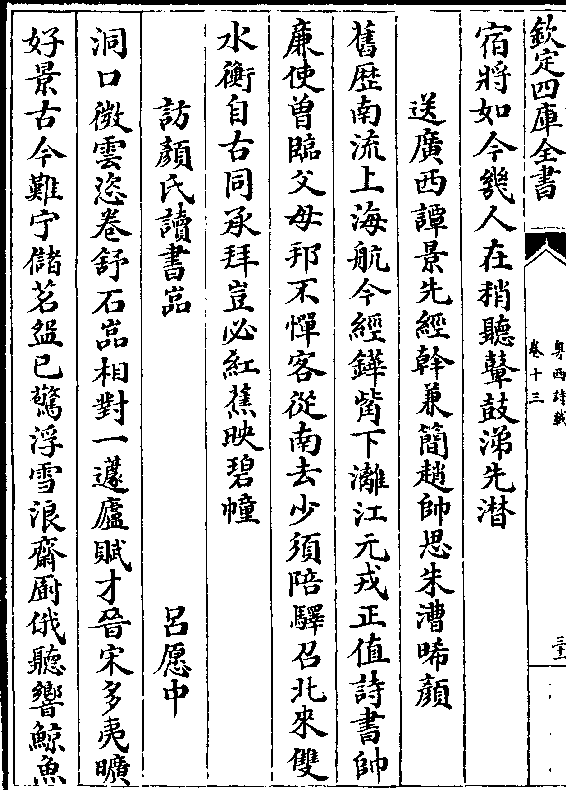 欽定四庫全書
粵西詩載
卷十三
宿將如今幾人在稍聽鼙鼓涕先潸
送廣西譚景先經幹兼簡趙帥思朱漕晞顏
舊歴南流上海航今經鏵觜下灕江元戎正值詩書帥
廉使曾臨父母邦不憚客從南去少須陪驛召北來雙
水衡自古同承拜豈必紅蕉映碧幢
訪顏氏讀書嵓 呂愿中
洞口微雲恣卷舒石嵓相對一蘧廬賦才晉宋多夷曠
好景古今難宁儲茗盌已驚浮雪浪齋厨俄聽響鯨魚